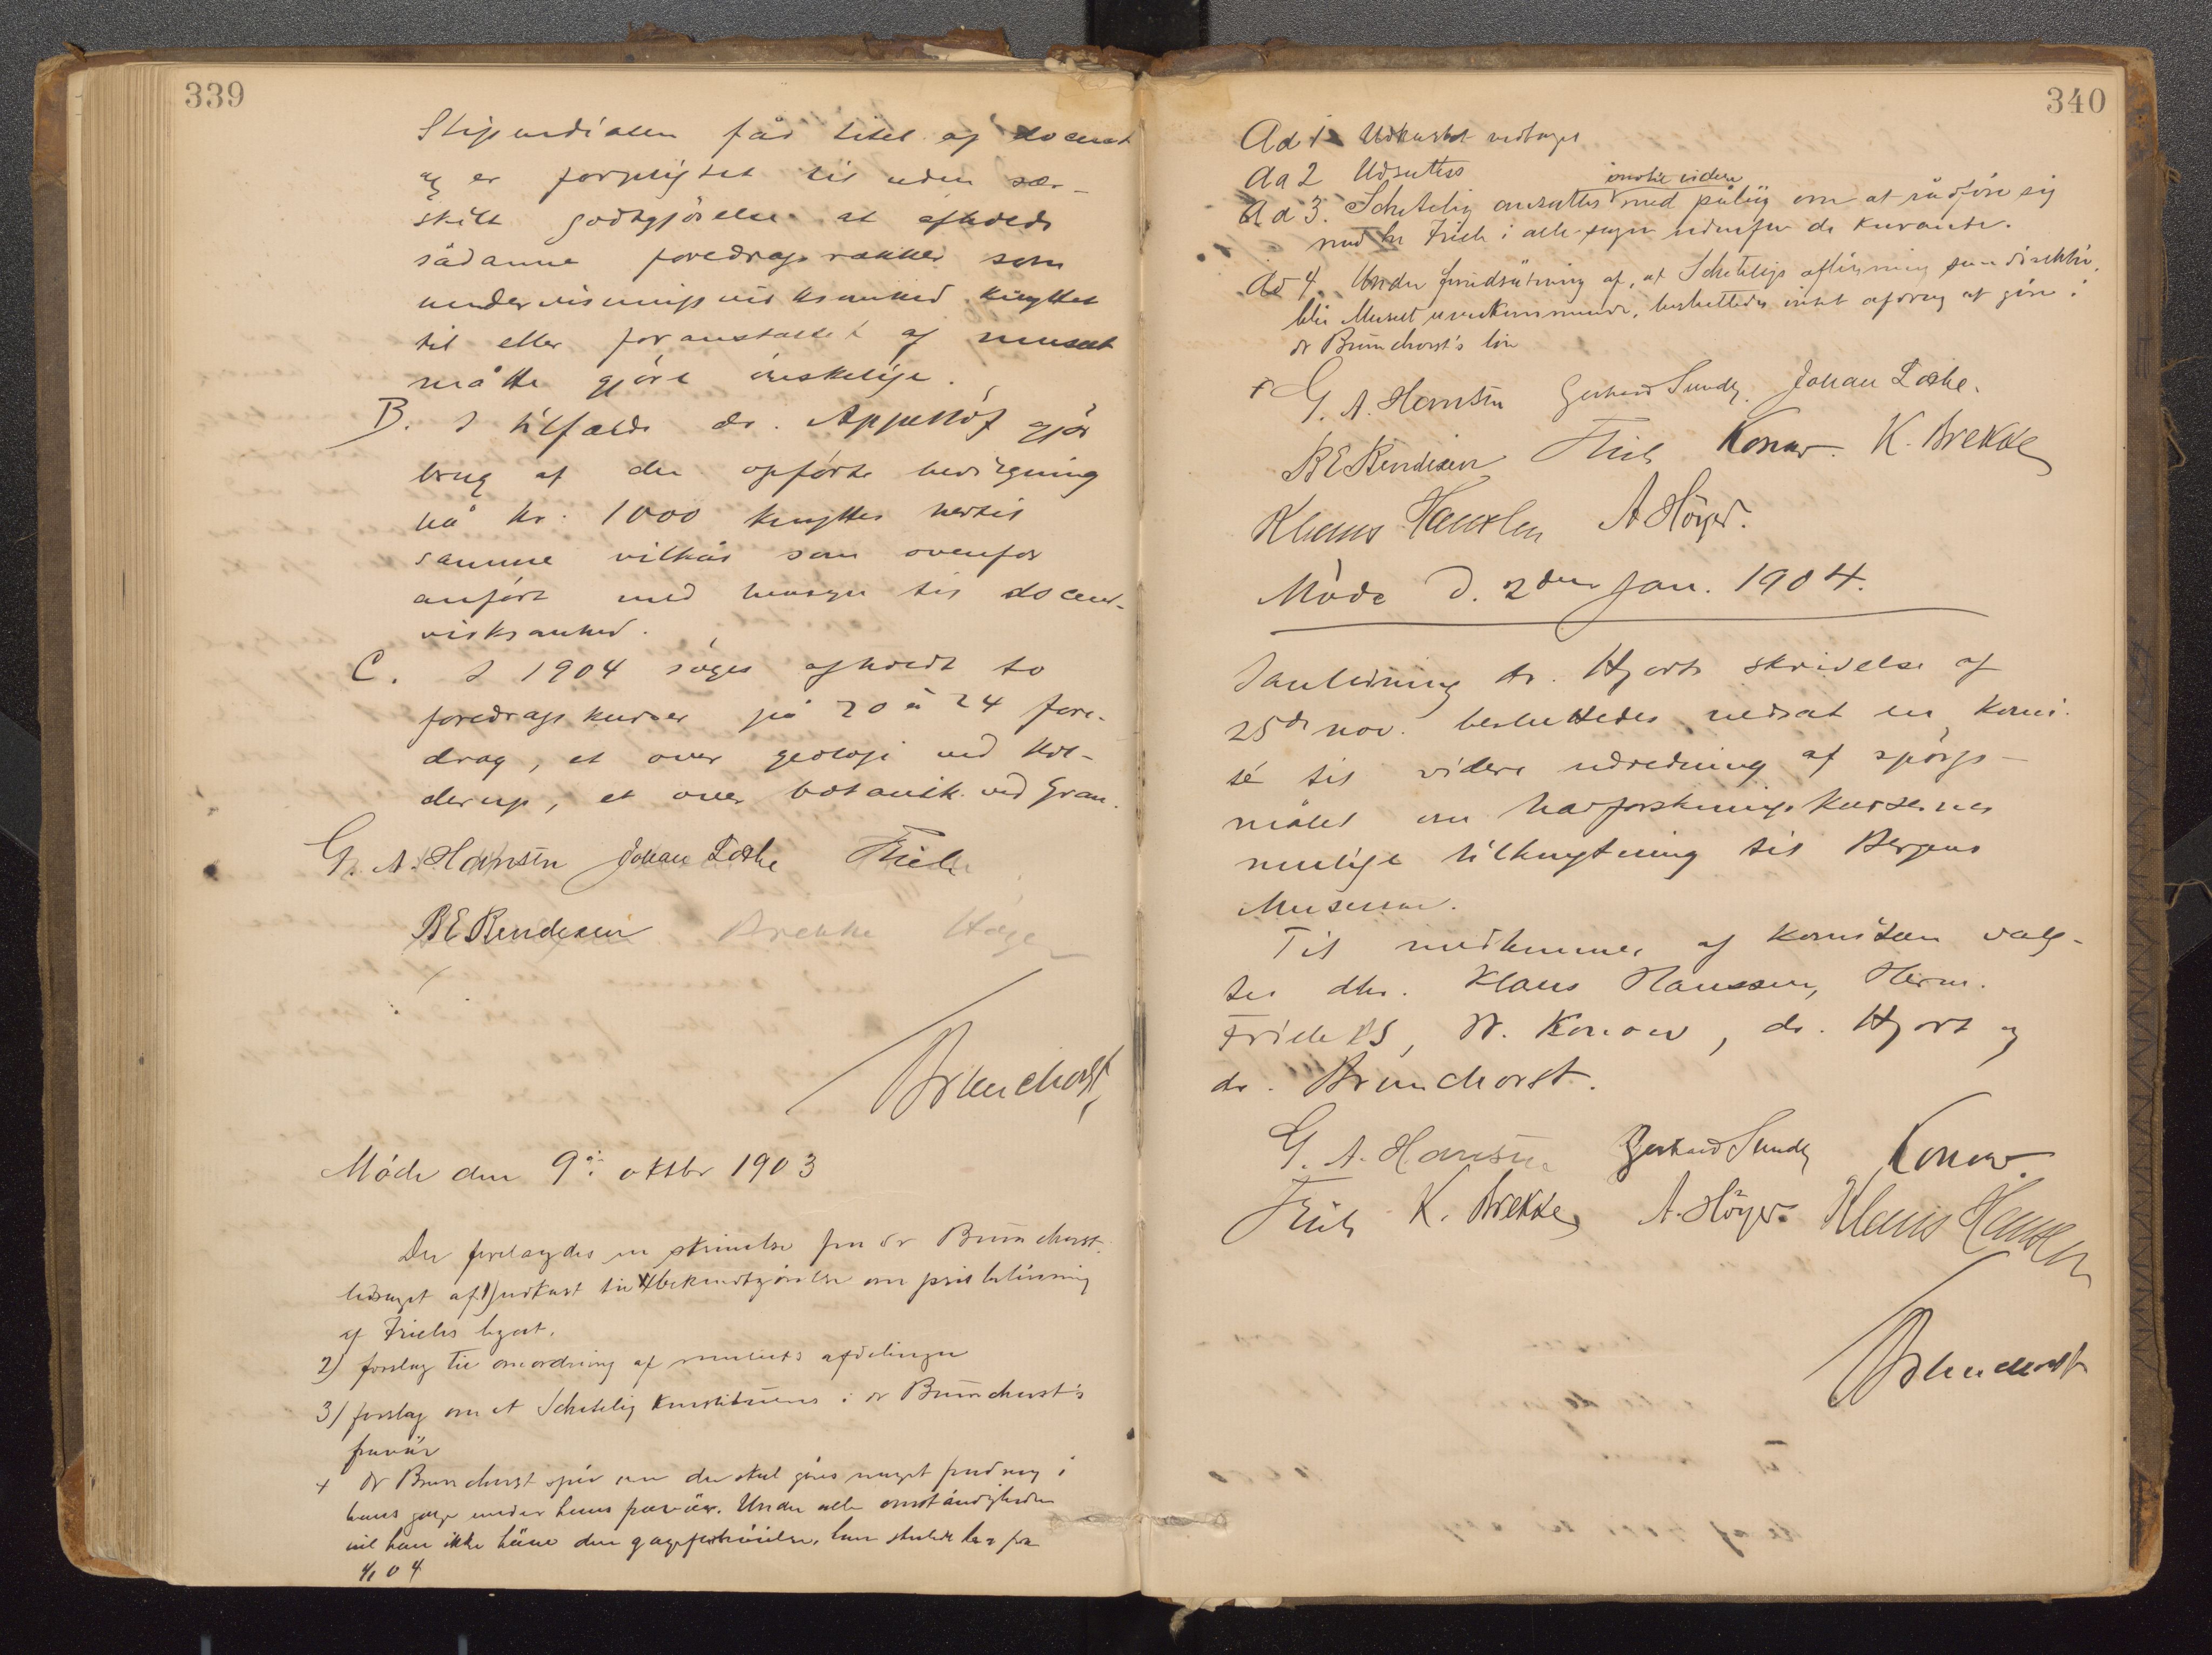 339
Stipendiaten får titel af docent
og er forpligtet til uden sær-
skilt godtgjörelse at afholde
sådanne foredragsrækker som
undervisningsvirksomhed knyttet
til eller foranstaltet af museet
måtte gjöre önskelige.
B. I tilfælde dr. Appellöf gjör
brug af den opförte bevilgning
på kr. 1000 knyttes hertil
samme vilkår som ovenfor
anfört med hensyn til docent-
virksomhed.
C. I 1904 söges afholdt to
foredragskurser på 20 à 24 fore-
drag, et over geologi ved Kol-
derup, et over botanik ved Gran.
G. A. Hansen Johan Lothe Friele
B E Bendixen Brekke Höyer
Brunchorst
Möde den 9de oktbr 1903
Der forelagdes en skrivelse fra dr Brunchorst
ledsaget af 1) udkast til bekendtgörelse om prisbelönning
af Frieles legat.
2) forslag til omordning af museets afdelinger
3) forslag om at Schetelig konstitueres i dr Brunchorst's
fravær
4 dr Brunchorst spör om der skal göres noget fradrag i
hans gage under hans fravær. Under alle omständigheder
vil han ikke häve den gageforhöielse, han skulde ha fra
1/1 04
340
Ad 1 Udkastet vedtages
Ad 2 Udsættes
indtil videre
Ad 3. Schetelig ansættes med pålæg om at rådföre sig
med hr Friele i alle sager udenfor de kurante.
Ad 4. Under forudsætning af, at Scheteligs aflönning som direktör
blir Museet uvedkommende, besluttedes intet afdrag at göre i
dr Brunchorst's lön
G. A. Hansen Gerhard Sundt. Johan Lothe.
B E Bendixen Friele Konow. K. Brekke
Klaus Hanssen A Höyer.
Möde d. 2den Jan. 1904.
I anledning dr. Hjorts skrivelse af
25de nov. besluttedes nedsat en komi-
té til videre udredning af spörgs-
målet om havforskningskursernes
mulige tilknytning til Bergens
Museum.
Til medlemmer af komiteen valg-
tes dhr. Klaus Hanssen, Herm.
Friele DS, W. Konow, dr. Hjort og
dr. Brunchorst.
G. A. Hansen Gerhard Sundt Konow.
Friele K. Brekke A. Höyer. Klaus Hanssen
Brunchorst